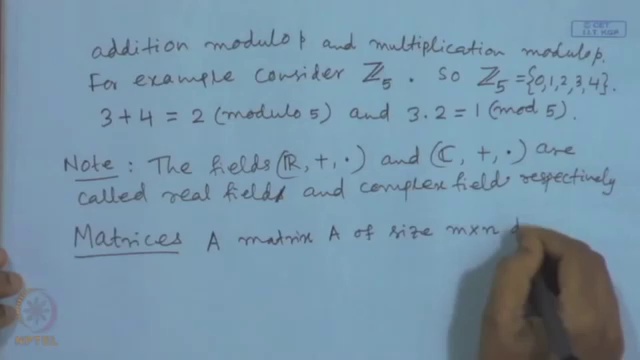 addition modulo p and multiplication modulo p.
For example consider ℤ₅. So ℤ₅ = {0,1,2,3,4}.
3+4 = 2 (modulo 5) and 3.2 = 1 (mod 5).
Note : The fields (ℝ, +, ·) and (ℂ, +, ·) are
called real field and complex field respectively
Matrices A matrix A of size m×n
NPTEL